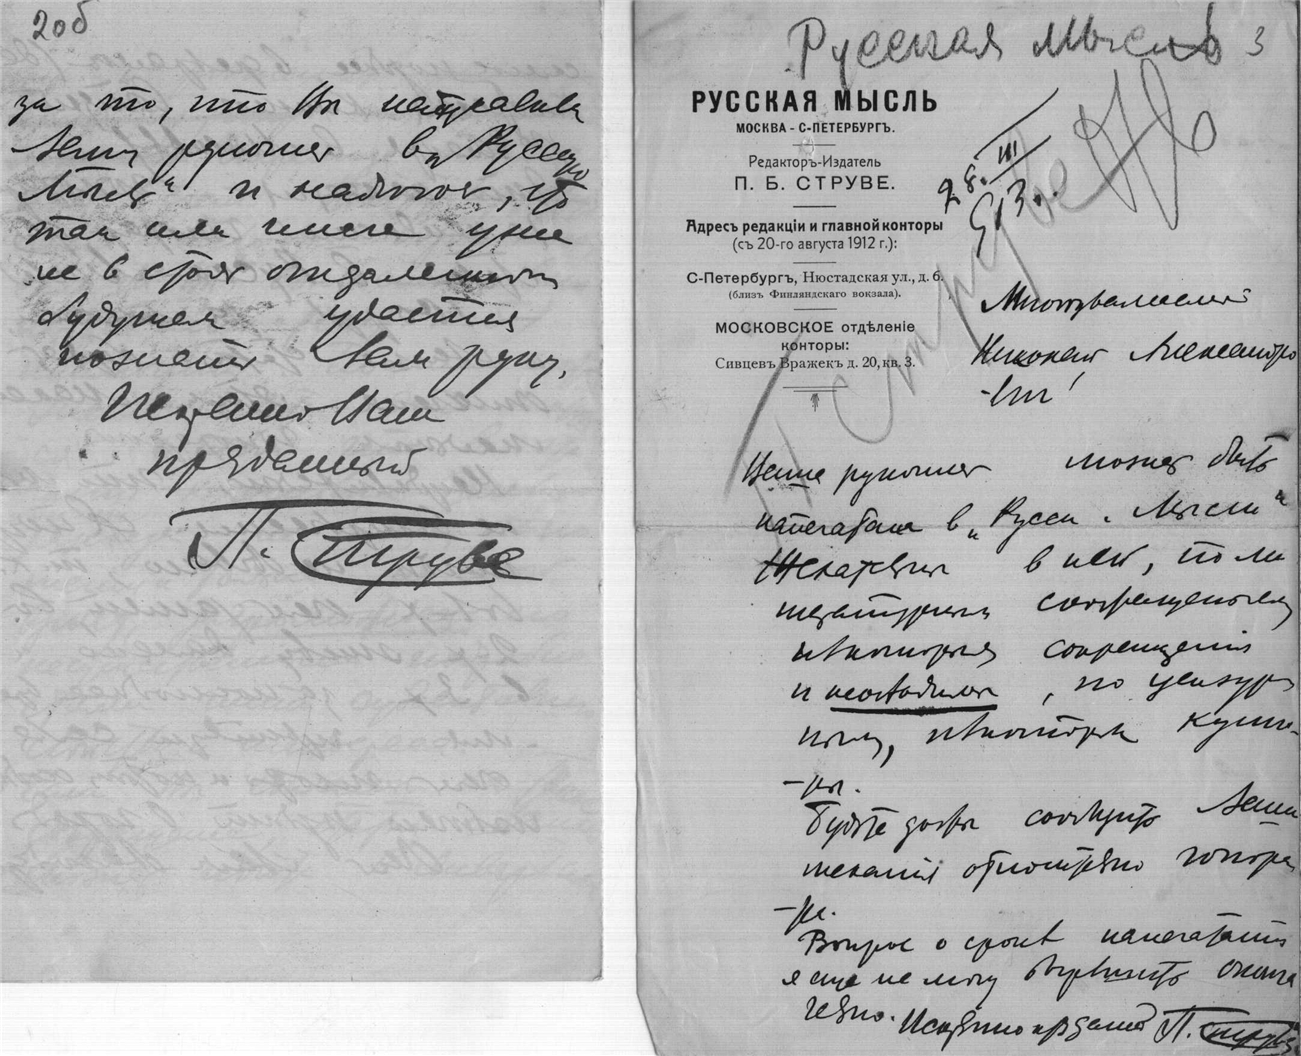 20об
за то, что Вы направили
Вашу рукопись в „Русскую
Мысль“ и надеюсь, что
так или иначе уже
не в столь отдаленном
будущем удастся
пожать Вам руку.
Искренно Ваш
преданный
П. Струве
Русская Мысль 3
РУССКАЯ МЫСЛЬ
МОСКВА - С-ПЕТЕРБУРГЪ.
Редакторъ-Издатель
П. Б. СТРУВЕ.
Адресъ редакціи и главной конторы
(съ 20-го августа 1912 г.):
С-Петербургъ, Нюстадская ул., д. 6.
(близъ Финляндскаго вокзала).
МОСКОВСКОЕ отдѣленіе
конторы:
Сивцевъ Вражекъ д. 20, кв. 3.
28. III
913.
П Струве
Многоуважаемый
Николай Александро
-вич!
Ваша рукопись может быть
напечатана в „Русск. Мысли“
Желательны в ней, по ли
тературным соображеньям,
нѣкоторыя сокращенія
и необходимы, по цензур
ным, нѣкоторыя купю-
-ры.
Будьте добры сообщить Ваши
желанія относительно гонора
-ра.
Вопрос о срокѣ напечатанія
я еще не могу вырѣшить оконча
тельно. Искренно преданный П. Струве